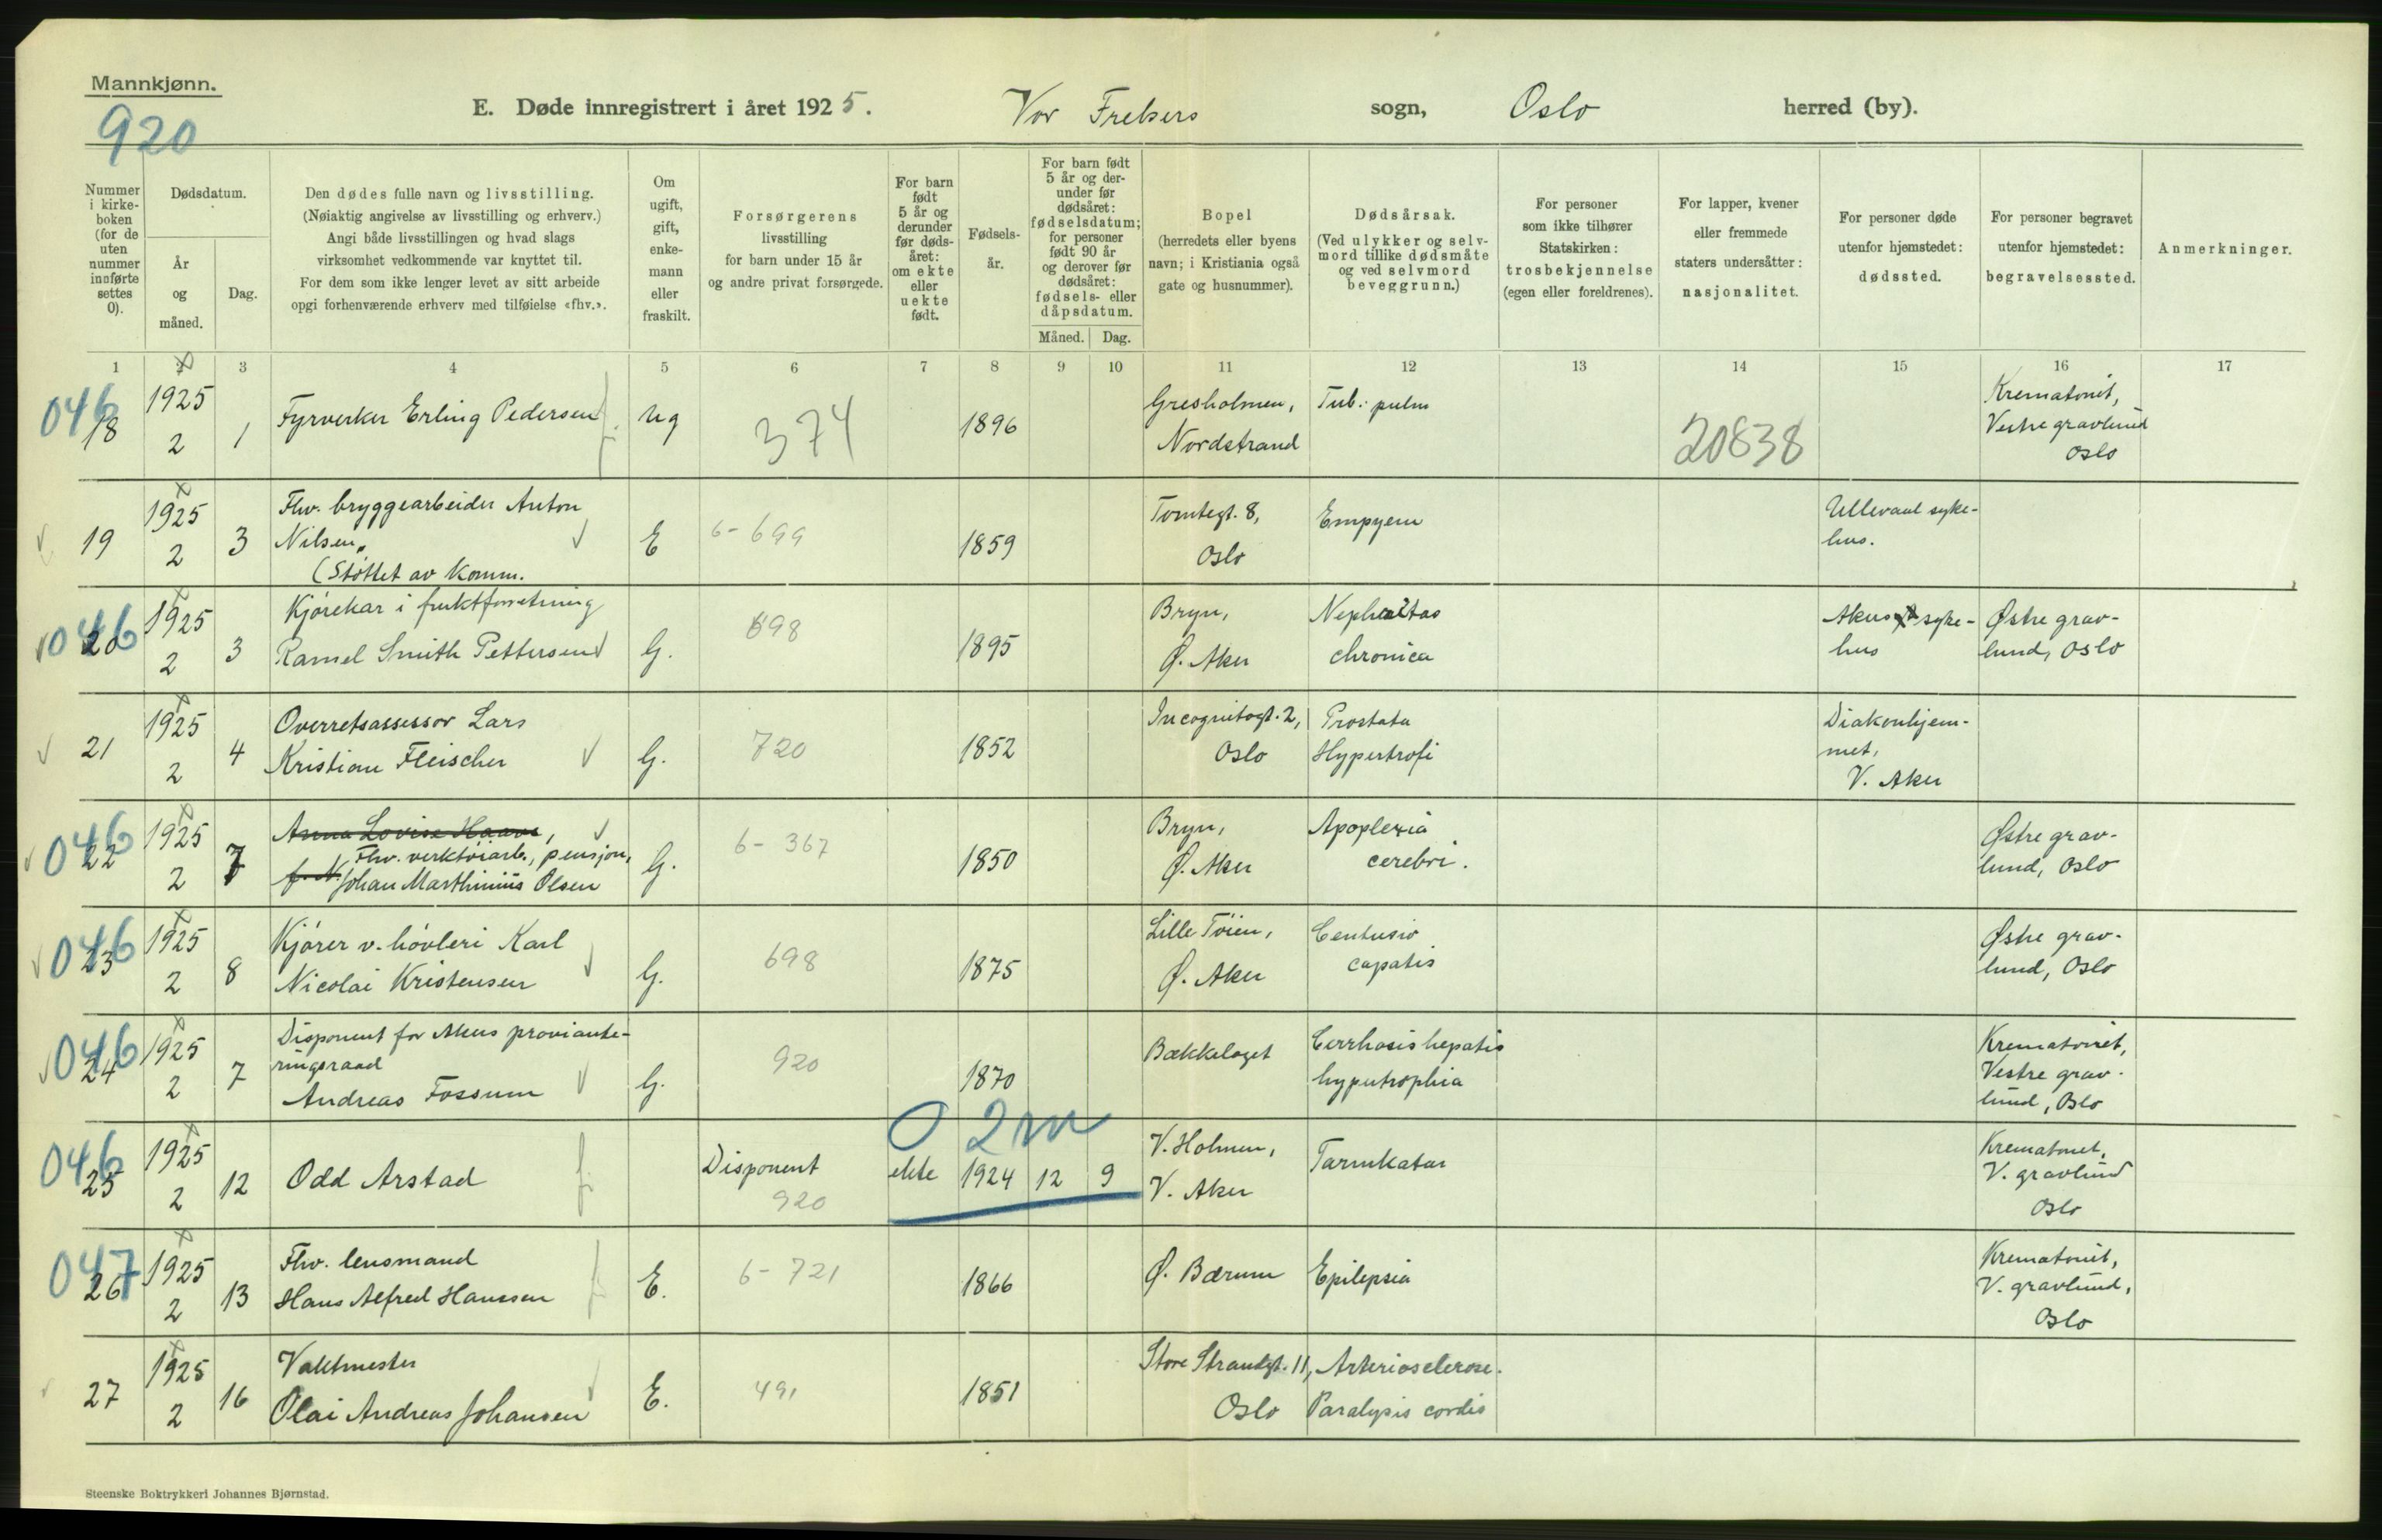 Mannkjønn.
920
E. Døde innregistrert i året 1925. Vor Frelsers sogn, Oslo herred (by).
Nummer i kirke-boken (for de uten nummer innførte settes 0).
Dødsdatum.
År og måned.
Dag.
Den dødes fulle navn og livsstilling.
(Nøiaktig angivelse av livsstilling og erhverv.)
Angi både livsstillingen og hvad slags
virksomhet vedkommende var knyttet til.
For dem som ikke lenger levet av sitt arbeide
opgi forhenværende erhverv med tilføielse «fhv.».
Om ugift, gift, enke-mann eller fraskilt.
Forsørgerens
livsstilling
for barn under 15 år
og andre privat forsørgede.
For barn født 5 år og derunder før døds-året: om ekte eller uekte født.
Fødsels-år.
For barn født 5 år og der-under før dødsåret: fødselsdatum; for personer født 90 år og derover før dødsåret: fødsels- eller dåpsdatum.
Måned. Dag.
Bopel
(herredets eller byens
navn; i Kristiania også
gate og husnummer).
Dødsårsak.
(Ved ulykker og selv-
mord tillike dødsmåte
og ved selvmord
beveggrunn.)
For personer
som ikke tilhører
Statskirken:
trosbekjennelse
(egen eller foreldrenes).
For lapper, kvener
eller fremmede
staters undersåtter:
nasjonalitet.
For personer døde
utenfor hjemstedet:
dødssted.
For personer begravet
utenfor hjemstedet:
begravelsessted.
Anmerkninger.
1 2 3 4 5 6 7 8 9 10 11 12 13 14 15 16 17
046
18 1925 2 1 Fyrverker Erling Pedersen ug 374 1896 Gresholmen, Nordstrand Tub. pulm 20838 Krematoriet, Vestre gravlund Oslo
19 1925 2 3 Fhv. bryggearbeider Anton
Nilsen,
(Støttet av komm. E 6-699 1859 Tomtegt. 8, Oslo Empyem Ullevaal syke-hus.
046
20 1925 2 3 Kjørekar i fruktforretning
Ramel Smith Pettersen G. 698 1895 Bryn, Ø. Aker Nephritas chronica Akers syke-hus Østre grav-lund, Oslo
21 1925 2 4 Overretsassessor Lars
Kristian Fleischer G. 720 1852 Incognitogt. 2, Oslo Prostata Hypertrofi Diakonhjem-met, V. Aker
046
22 1925 2 7 Anna Lovise Haave,
Fhv. verktöiarb., pensjon,
f. N. Johan Marthinius Olsen G. 6-367 1850 Bryn, Ø. Aker Apoplexia cerebri. Østre grav-lund, Oslo
046
23 1925 2 8 Kjører v. høvleri Karl
Nicolai Kristensen G. 698 1875 Lille Tøien, Ø. Aker Contusio capatis Østre grav-lund, Oslo
046
24 1925 2 7 Disponent for Akers proviante-
ringsraad
Andreas Fossum G. 920 1870 Bækkelaget Cerrhosis hepatis hypertrophia Krematoriet, Vestre grav-lund, Oslo
0 2m
046
25 1925 2 12 Odd Arstad Disponent 920 ekte 1924 12 9 V. Holmen, V. Aker Tarmkatar Krematoriet, V. gravlund Oslo
047
26 1925 2 13 Fhv. lensmand
Hans Alfred Hanssen E. 6-721 1866 Ø. Bærum Epilepsia Krematoriet, V. gravlund, Oslo
27 1925 2 16 Vaktmester
Olai Andreas Johansen E. 491 1851 Store Strandgt. 11, Oslo Arteriosclerose. Paralysis cordis
Steenske Boktrykkeri Johannes Bjørnstad.